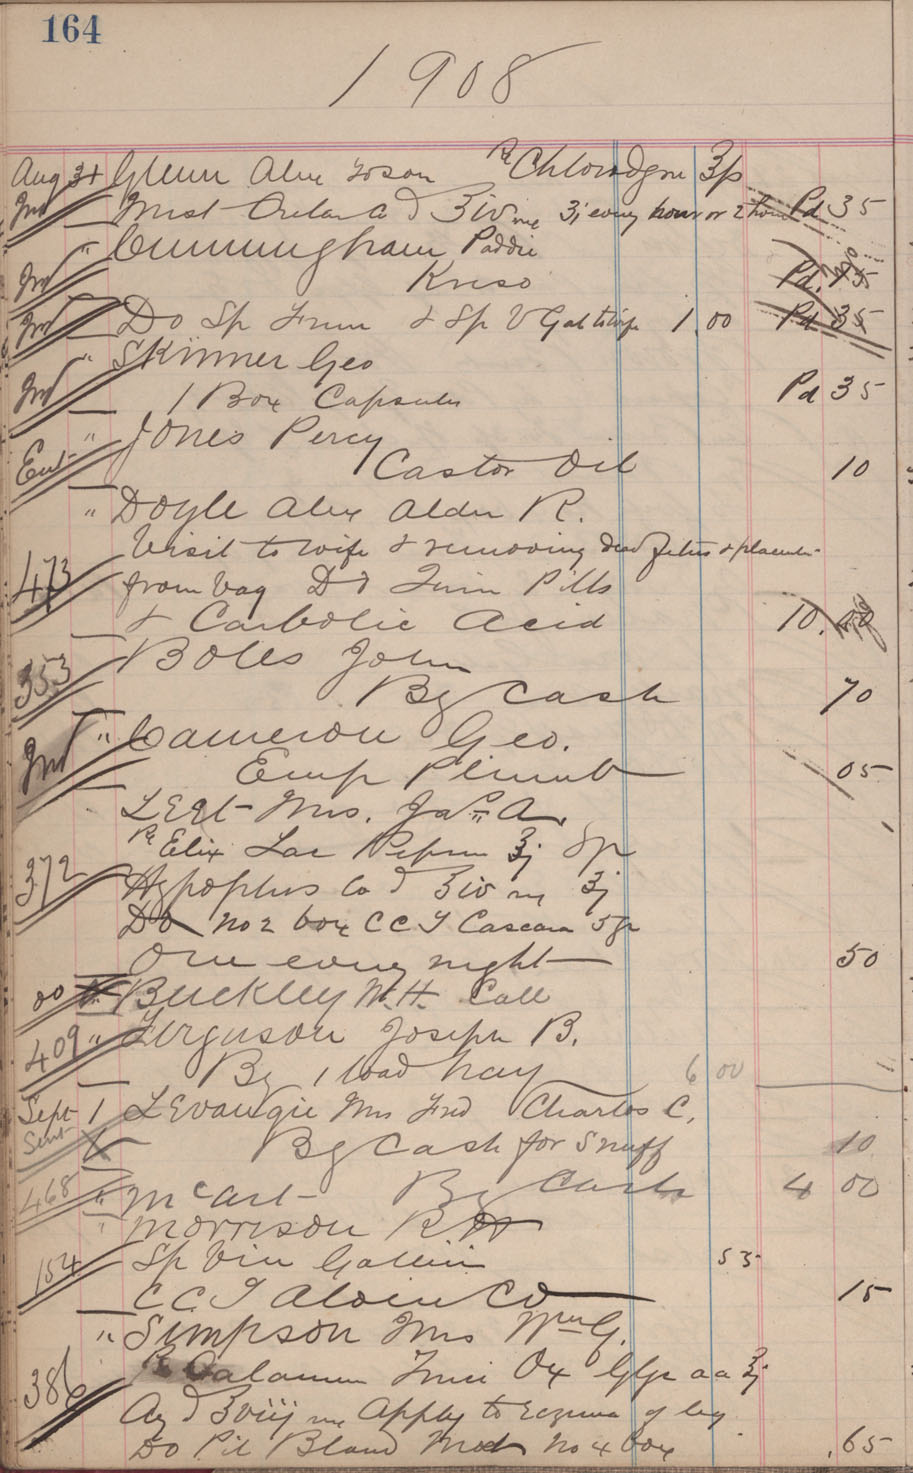 164
1908
Aug 31 Glenn Alex ℞ Chlorodyne ʒ
Mist Cretae ʒiv ʒj every hour or 2 hours Pd 35
" Cunningham Paddie
Kreso Pd.
Do Sp & Sp V Gal 1.00 Pd 35
" Skinner Geo
1 Box Capsules Pd 35
" Jones Percy
Ent Castor Oil 10
" Doyle Alex Alder R.
Visit to wife & removing dead fetus & placenta
473 from vag Pills
& Carbolic Acid 10.
Boles John
353 By Cash 70
" Cameron Geo.
Emp Plumb 05
Mrs. Jas. A.
℞ Elix Lac Pepsin ʒj
372 Hypophos Co ʒiv ʒj
Do No 2 box C C T Cascara 5 gr
One every night 50
00 Buckley W.H. Call
409 " Ferguson Joseph B.
By 1 load hay 6 00
Sept 1 LEvangie Mrs Fred Charles C.
By Cash for Snuff 10
468 " McArt By Cash 4 00
" Morrison R
154 Sp Vin Gallici 55
C C T Aloin Co 15
" Simpson Mrs Wm G.
℞ Calamin Zinci Ox Glyc aa ʒj
386 Aq ʒviij Apply to Eczema of leg
Do Pil Bland Mod No 4 box .65